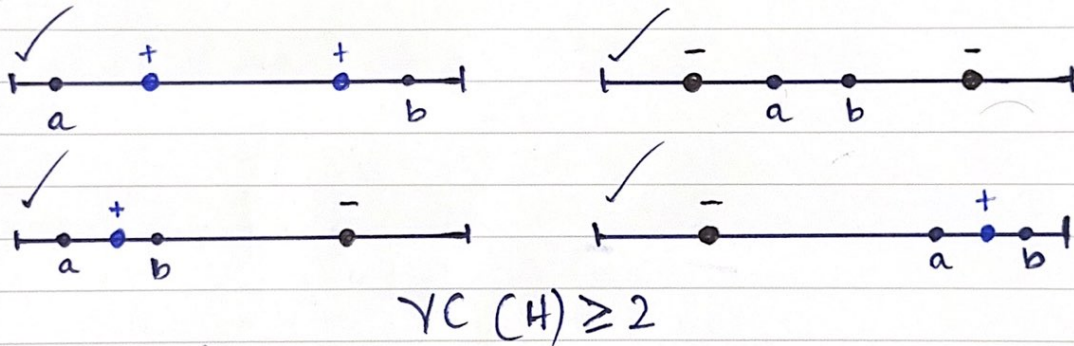 + + - -
a b a b
+ - - +
a b a b
VC (H) ≥ 2